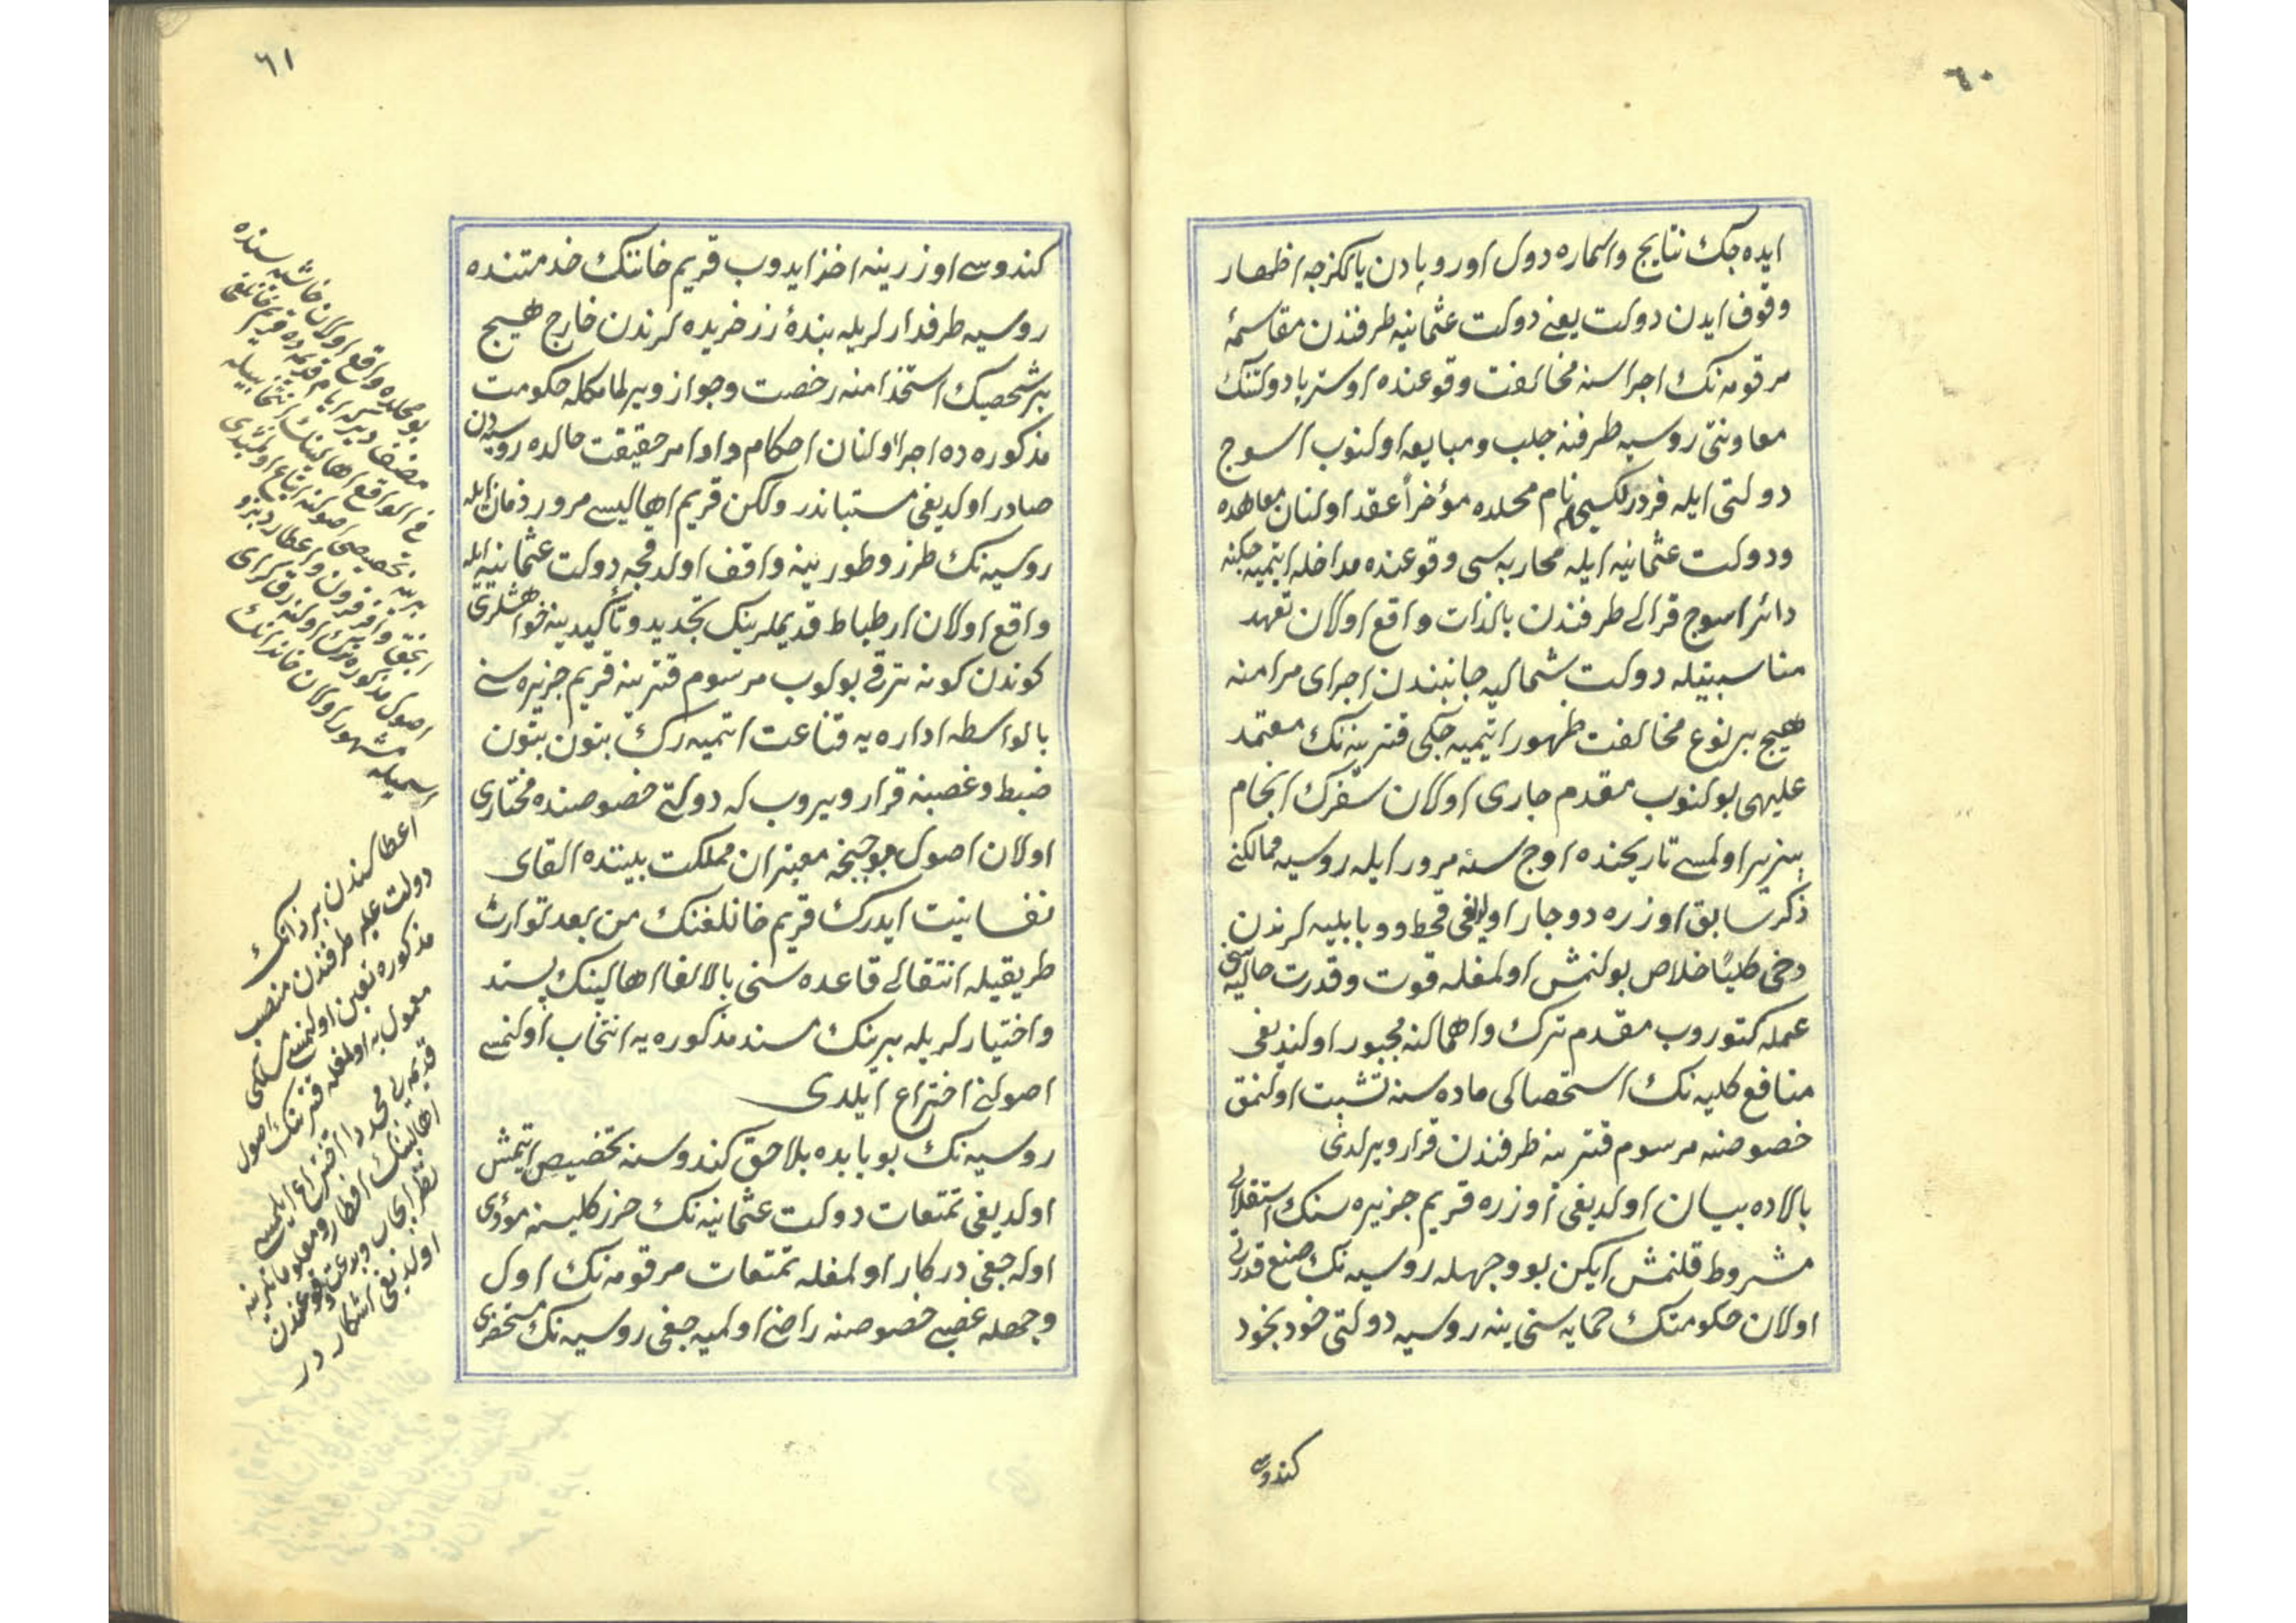 ٦٠
ایده جك نتایج واثماره دول اوروپادن یالكزجه اظهار
وقوف ایدن دولت یعنی دولت عثمانیه طرفندن مقاسمۀ
مرقومه نك اجراسنه مخالفت وقوعنده اوستریا دولتنك
معاونتی روسیه طرفنه جلب ومبایعه اولنوب اسوج
دولتی ایله فردركسهام نام محلده مؤخراً عقد اولنان معاهده
ودولت عثمانیه ایله محاربه سی وقوعنده مداخله ایتمیه جكنه
دائر اسوج قرالی طرفندن بالذات واقع اولان تعهد
مناسبتیله دولت شمالیه جانبندن اجرای مرامنه
هیچ بر نوع مخالفت ظهور ایتمیه جكی قترینه نك معتمد
علیهی بولنوب مقدم جاری اولان سفرك انجام
پذیر اولمسی تاریخنده اوچ سنه مرور ایله روسیه ممالكی
ذكر سابق اوزره دوچار اولدیغی قحط ووبا بلیه لرندن
دخی كلیاً خلاص بولنمش اولمغله قوت وقدرت حالیه سنی
عمله كتوروب مقدم ترك واهمالنه مجبور اولندیغی
منافع كلیه نك استحصالی ماده سنه تشبث اولنمق
خصوصنه مرسوم قترینه طرفندن قرار ویرلدی
بالاده بیان اولدیغی اوزره قریم جزیره سنك استقلالی
مشروط قلنمش ایكن بو وجهله روسیه نك صنع قدرتی
اولان حكومتك حمایه سنی ینه روسیه دولتی خود بخود
كندوسی
٦١
كندوسی اوزرینه اخذ ایدوب قریم خاننك خدمتنده
روسیه طرفدارلریله بندۀ زرخریده لرندن خارج هیچ
بر شخصك استخدامنه رخصت وجواز ویرلمامكله حكومت
مذكوره ده اجرا اولنان احكام واوامر حقیقت حالده روسیه دن
صادر اولدیغی مستباندر ولكن قریم اهالیسی مرور زمان ایله
روسیه نك طرز وطورینه واقف اولدقجه دولت عثمانیه ایله
واقع اولان ارطباط قدیملرینك تجدید وتأكیدینه خواهشلری
كوندن كونه ترقی بولوب مرسوم قترینه قریم جزیره سنی
بالواسطه اداره یه قناعت ایتمیه رك بتون بتون
ضبط وغصبنه قرار ویروب له دولتی خصوصنده مختاری
اولان اصول موجبنجه معتبران مملكت بیننده القای
نفسانیت ایدرك قریم خانلغنك من بعد توارث
طریقیله انتقالی قاعده سنی بالالغا اهالینك پسند
واختیارلریله برینك مسند مذكوره یه انتخاب اولنمسی
اصولنی اختراع ایلدی
روسیه نك بو بابده بلاحق كندوسنه تخصیص ایتمش
اولدیغی تمتعات دولت عثمانیه نك ضرر كلیسنه مؤدی
اوله جغی دركار اولمغله تمتعات مرقومه نك اول
وجهله غصبی خصوصنه راضی اولمیه جغی روسیه نك مستحضری
بو محلده واقع اولان حاشیه سنده
مصنف دیر كه ایام قدیمه ده قریم خانلغی
فی الواقع اهالینك انتخابیله
برینه تخصیصی اصولنه اتباع اولنمشدی
اصول مذكوره ترك اولنه رق كرای
مشهور اولان خاندانك
اسمیله
اعطا كندن بر ذاتك
دولت علیه طرفندن منصب
مذكوره تعیین اولنمسی مسلكی
معمول به اولمغله قترینك اصول
قدیمه یی مجدداً اختراع ایلمسی
اهالینك افكار ومعلوماتلرینه
نظراً
اولدیغی آشكاردر